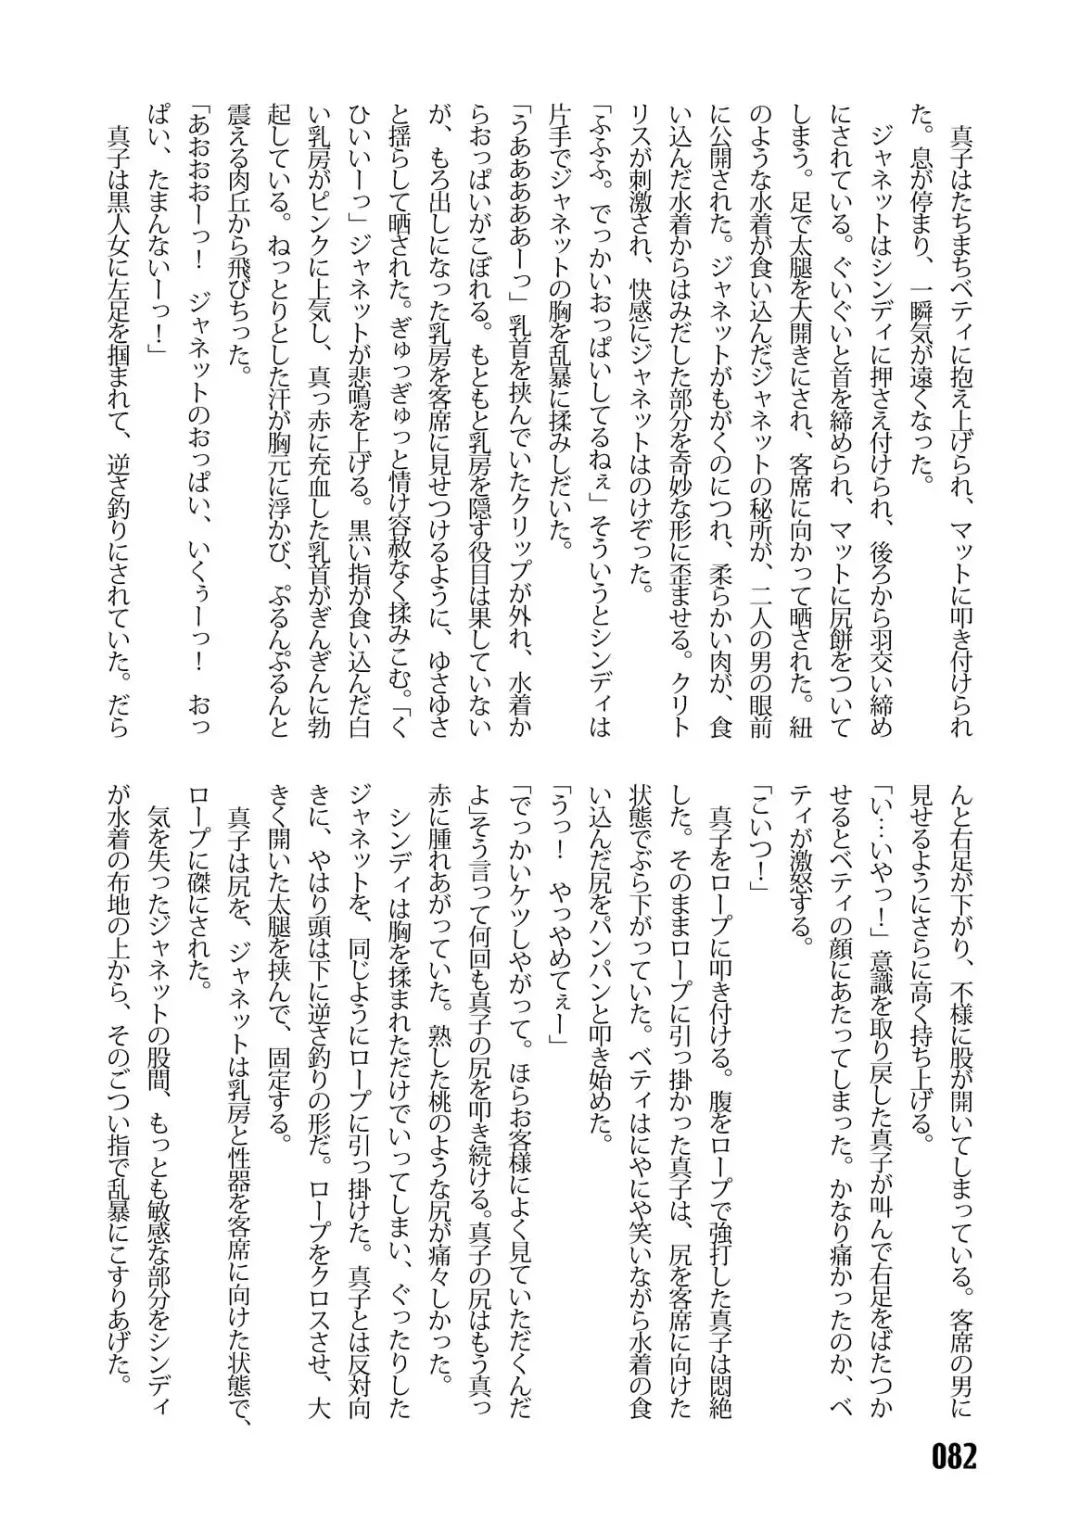 真子はたちまちベティに抱え上げられ、マットに叩き付けられ
た。息が停まり、一瞬気が遠くなった。
ジャネットはシンディに押さえ付けられ、後ろから羽交い締め
にされている。ぐいぐいと首を締められ、マットに尻餅をついて
しまう。足で太腿を大開きにされ、客席に向かって晒された。紐
のような水着が食い込んだジャネットの秘所が、二人の男の眼前
に公開された。ジャネットがもがくのにつれ、柔らかい肉が、食
い込んだ水着からはみだした部分を奇妙な形に歪ませる。クリト
リスが刺激され、快感にジャネットはのけぞった。
「ふふふ。でっかいおっぱいしてるねぇ」そういうとシンディは
片手でジャネットの胸を乱暴に揉みしだいた。
「うああああーっ」乳首を挟んでいたクリップが外れ、水着か
らおっぱいがこぼれる。もともと乳房を隠す役目は果していない
が、もろ出しになった乳房を客席に見せつけるように、ゆさゆさ
と揺らして晒された。ぎゅっぎゅっと情け容赦なく揉みこむ。「く
ひいいーっ」ジャネットが悲鳴を上げる。黒い指が食い込んだ白
い乳房がピンクに上気し、真っ赤に充血した乳首がぎんぎんに勃
起している。ねっとりとした汗が胸元に浮かび、ぷるんぷるんと
震える肉丘から飛びちった。
「あおおおーっ！　ジャネットのおっぱい、いくぅーっ！　おっ
ぱい、たまんないーっ！」
真子は黒人女に左足を掴まれて、逆さ釣りにされていた。だら
んと右足が下がり、不様に股が開いてしまっている。客席の男に
見せるようにさらに高く持ち上げる。
「い…いやっ！」意識を取り戻した真子が叫んで右足をばたつか
せるとベティの顔にあたってしまった。かなり痛かったのか、ベ
ティが激怒する。
「こいつ！」
真子をロープに叩き付ける。腹をロープで強打した真子は悶絶
した。そのままロープに引っ掛かった真子は、尻を客席に向けた
状態でぶら下がっていた。ベティはにやにや笑いながら水着の食
い込んだ尻をパンパンと叩き始めた。
「うっ！　やっやめてぇー」
「でっかいケツしやがって。ほらお客様によく見ていただくんだ
よ」そう言って何回も真子の尻を叩き続ける。真子の尻はもう真っ
赤に腫れあがっていた。熟した桃のような尻が痛々しかった。
シンディは胸を揉まれただけでいってしまい、ぐったりした
ジャネットを、同じようにロープに引っ掛けた。真子とは反対向
きに、やはり頭は下に逆さ釣りの形だ。ロープをクロスさせ、大
きく開いた太腿を挟んで、固定する。
真子は尻を、ジャネットは乳房と性器を客席に向けた状態で、
ロープに磔にされた。
気を失ったジャネットの股間、もっとも敏感な部分をシンディ
が水着の布地の上から、そのごつい指で乱暴にこすりあげた。
082